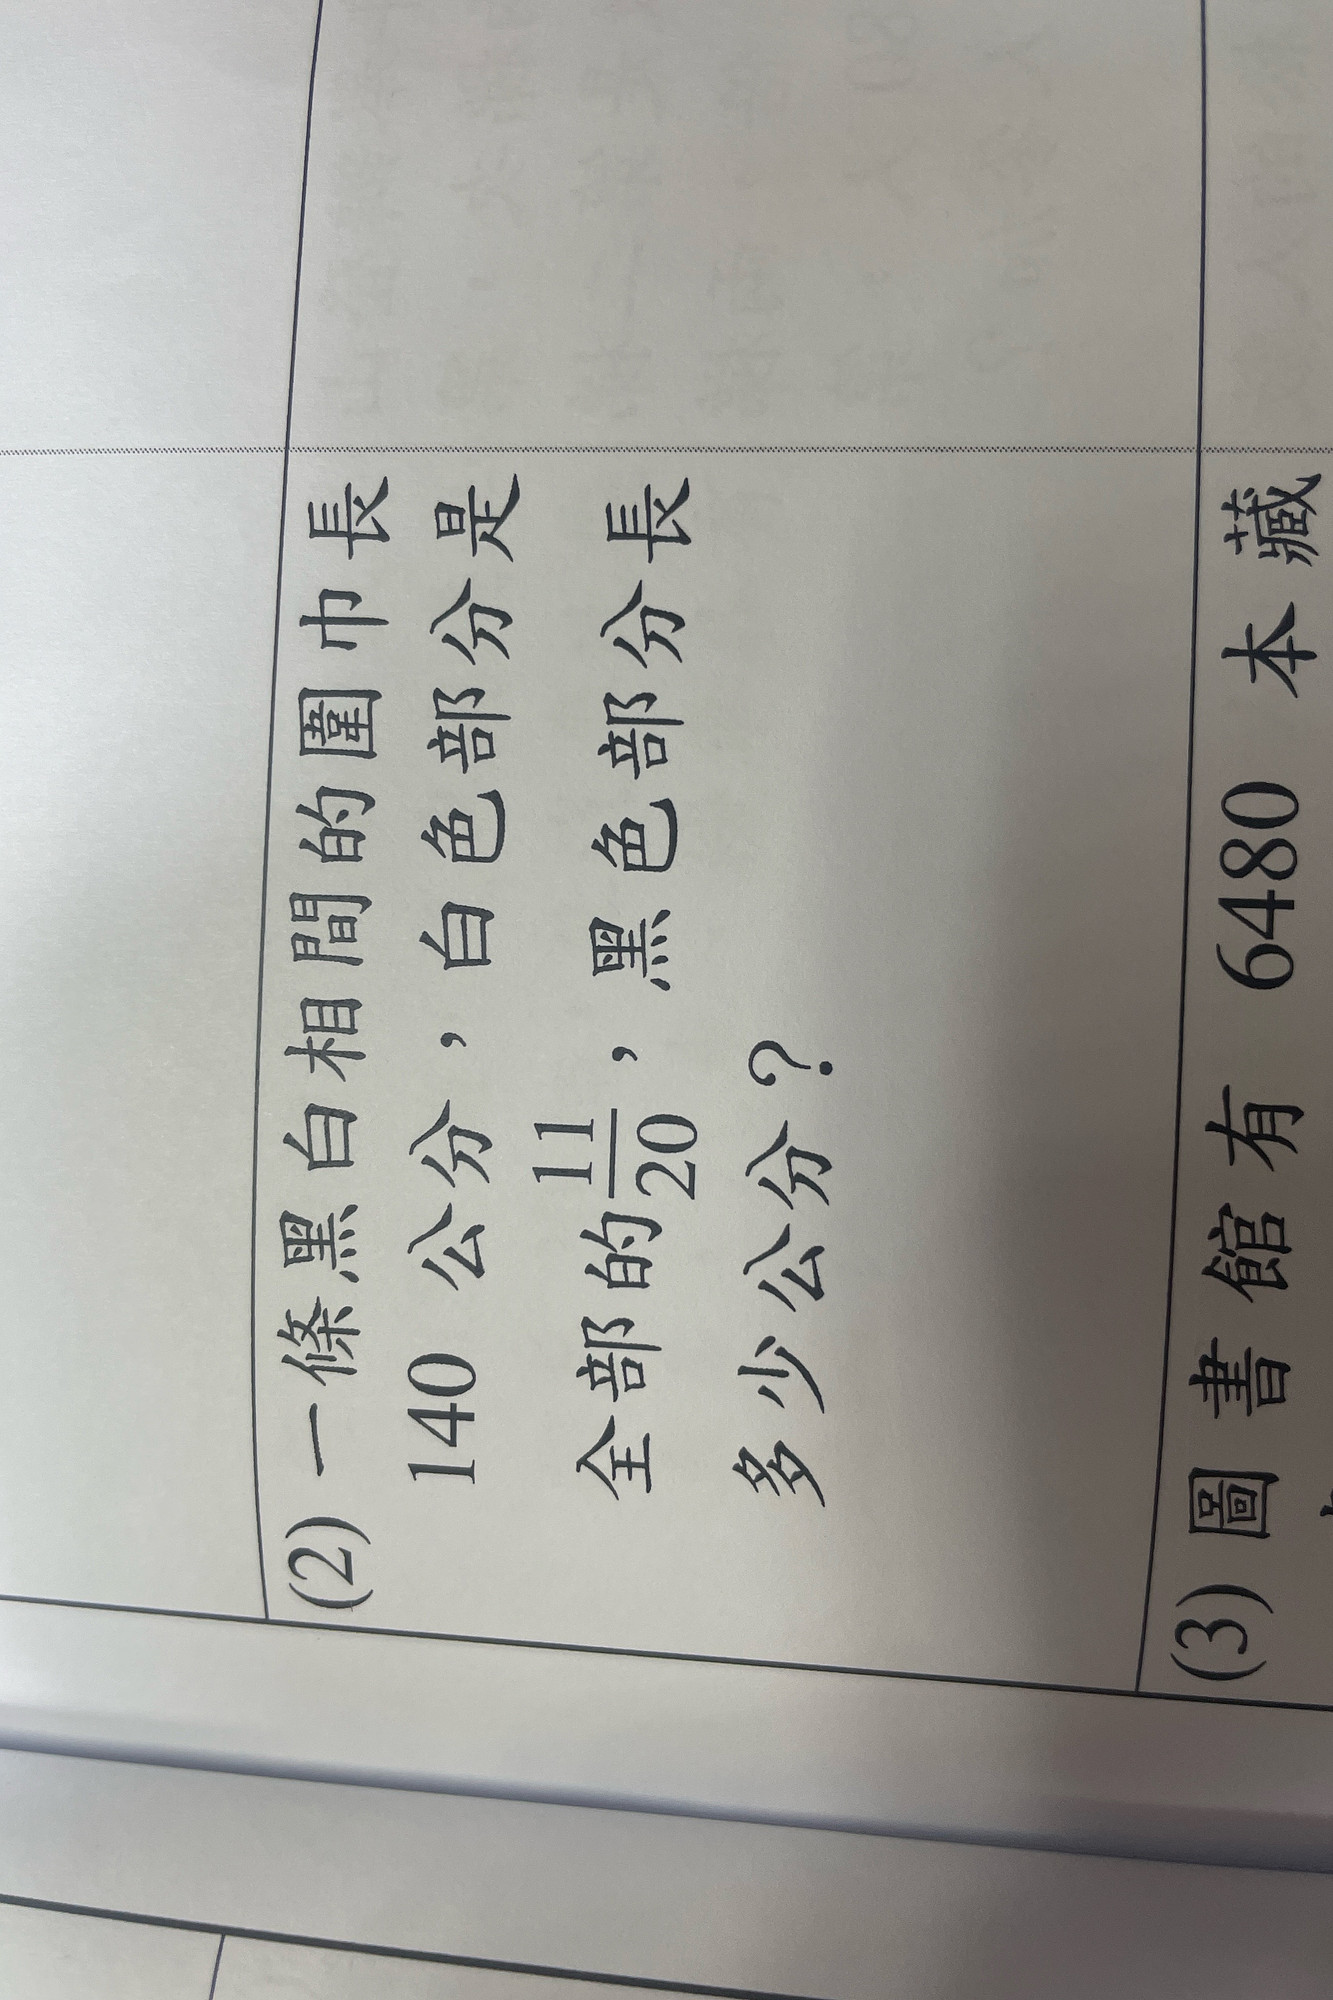 (2) 一條黑白相間的圍巾長
140 公分，白色部分是
全部的11/20，黑色部分長
多少公分？
(3) 圖書館有 6480 本藏